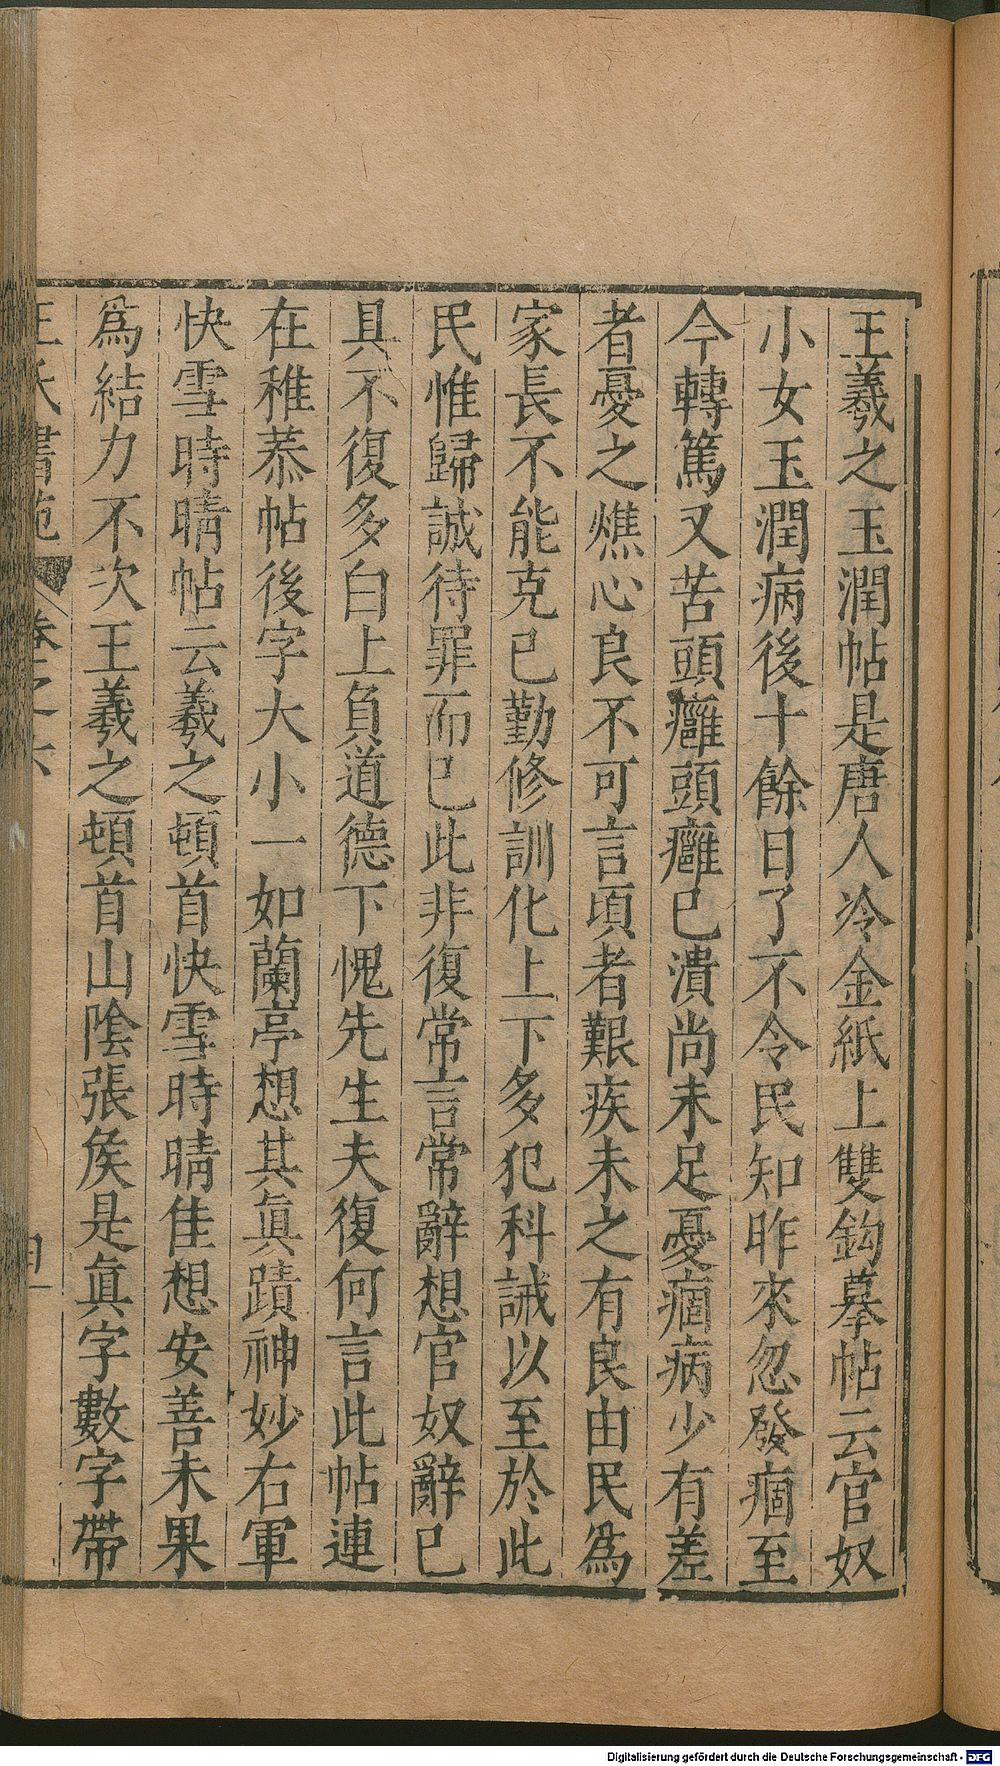 王羲之玉潤帖是唐人冷金紙上雙鈎摹帖云官奴
小女玉潤病後十餘日了不令民知昨來忽發痼至
今轉篤又苦頭癰頭癰已潰尚未足憂痼病少有差
者憂之燋心良不可言頃者艱疾未之有良由民爲
家長不能克已勤修訓化上下多犯科誡以至於此
民惟歸誠待罪而已此非復常言常辭想官奴辭已
具不復多白上負道德下愧先生夫復何言此帖連
在稚恭帖後字大小一如蘭亭想其眞蹟神妙右軍
快雪時晴帖云羲之頓首快雪時晴佳想安善未果
爲結力不次王羲之頓首山隂張矦是眞字數字帶
王氏書苑 卷之六
Digitalisierung gefördert durch die Deutsche Forschungsgemeinschaft - DFG